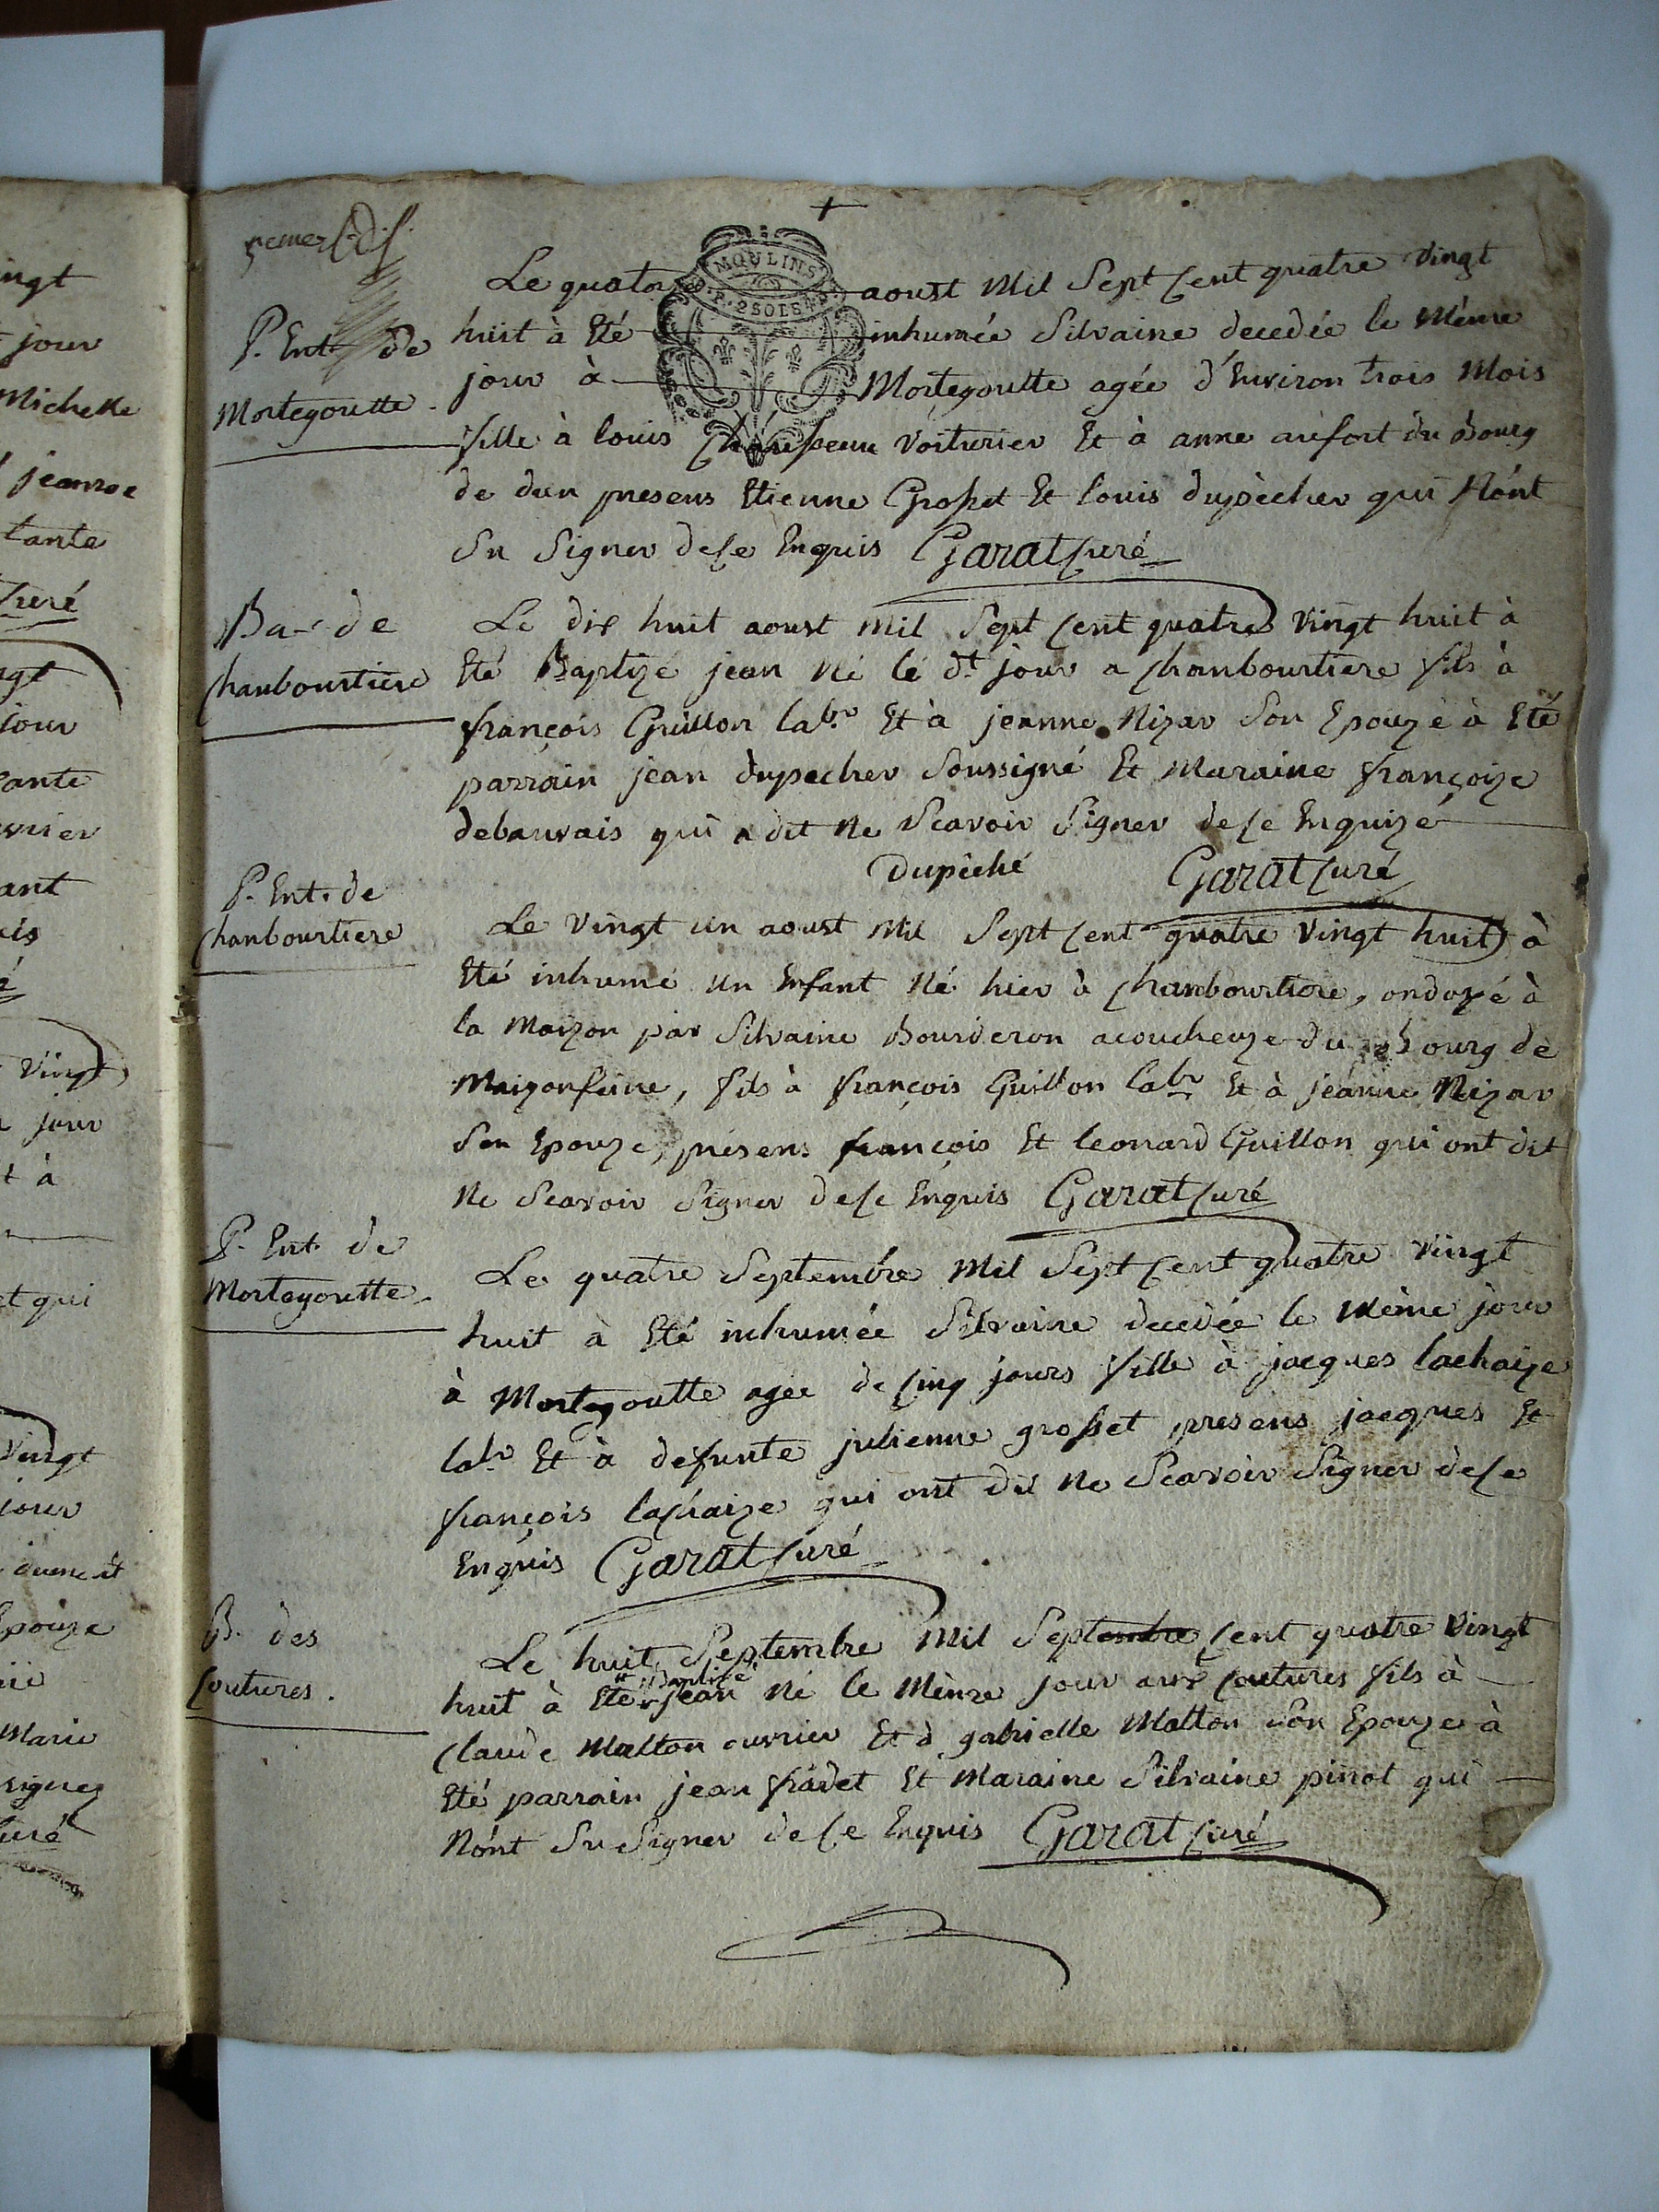 5eme
MOULINS
2 SOLS
P. Ent. de
Mortegoutte.
Le quatorze aoust Mil Sept Cent quatre vingt
huit à Eté inhumée Silvaine decedée le Même
jour à Mortegoutte agée d'Environ trois Mois
fille à louis voiturier Et à anne aufort du Bourg
de dun presens Etienne Grosset Et louis dupècher qui N'ónt
Su Signer de Ce Enquis Garat Curé
Ba. de
Chanbourtiere
Le dix huit aoust Mil Sept Cent quatre vingt huit à
Eté Baptizé jean Né le dt jour a Chanbourtiere fils à
françois Guillon labr Et à jeanne Nizar Son Epouze à Eté
parrain jean dupecher Soussigné Et Maraine françoize
debauvais qui a dit Ne Scavoir Signer de Ce Enquizé
Dupêché Garat Curé
P. Ent. de
Chanbourtiere
Le vingt un aoust Mil Sept Cent quatre vingt huit à
Eté inhumé un Enfant Né hier à Chanbourtiere, ondoyé à
la Maizon par Silvaine Bourderon acoucheuze du Bourg de
Maizonfeine, fils à françois Guillon labr Et à jeanne Nizar
Son Epouze, présens françois Et leonard Guillon qui ont dit
Ne Scavoir Signer de Ce Enquis Garat Curé
P. Ent. de
Mortegoutte.
Le quatre Septembre Mil Sept Cent quatre vingt
huit à Eté inhumée Silvaine decedée le Même jour
à Mortegoutte agée de Cinq jours fille à jacques lachaize
labr Et à defunte julienne grosset presens jacques Et
françois lachaize qui ont dit Ne Scavoir Signer de Ce
Enquis Garat Curé
B. des
Coutures.
Le huit Septembre Mil Septembre Cent quatre vingt
Baptizé
huit à Eté jean Né le Même jour aux Coutures fils à
Claude Malton ouvrier Et à gabrielle Malton Son Epouze à
Eté parrain jean fradet Et Maraine Silvaine pinot qui
N'ónt Su Signer de Ce Enquis Garat Curé
ingt
jour
Michelle
jeanne
tante
Curé
jour
ant
Vingt
jour
t à
et qui
Vingt
jour
Epouze
Marie
signez